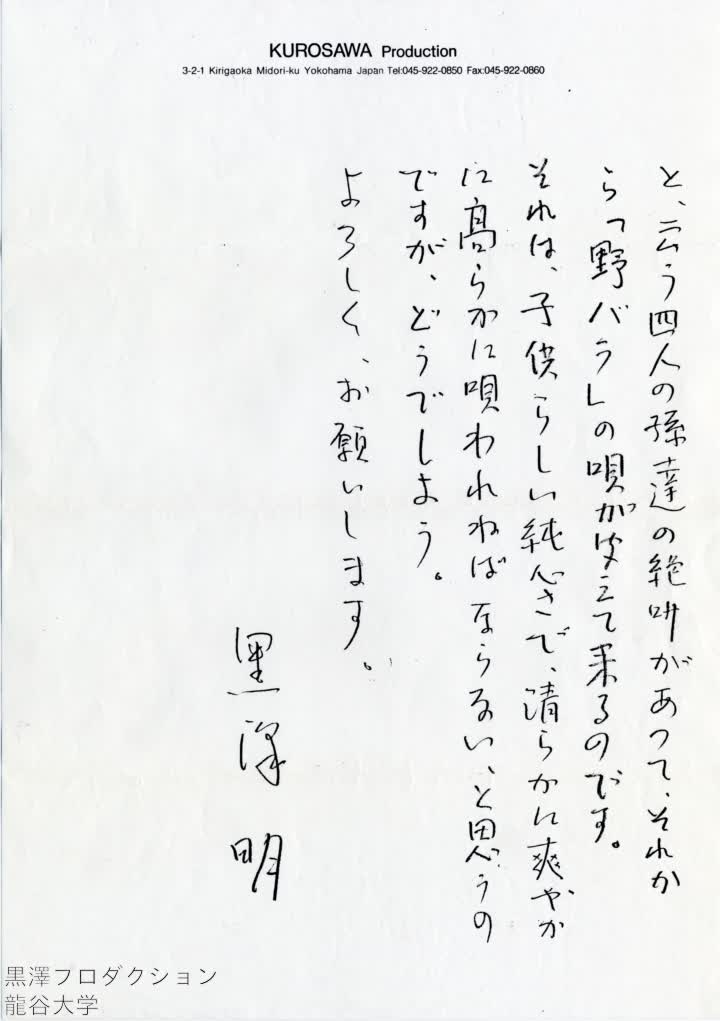 KUROSAWA Production
3-2-1 Kirigaoka Midori-ku Yokohama Japan Tel:045-922-0850 Fax:045-922-0860
と、云う四人の孫達の絶叫があって、それか
ら「野バラ」の唄が聞えて来るのです。
それは、子供らしい純心さで、清らかに爽やか
に高らかに唄われねばならない、と思うの
ですが、どうでしょう。
よろしく、お願いします。
黒澤明
黒澤プロダクション
龍谷大学